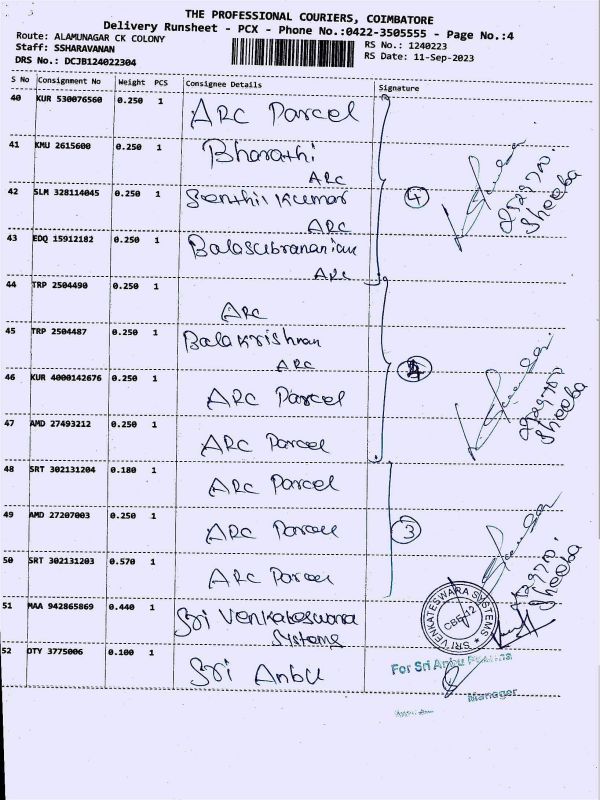 THE PROFESSIONAL COURIERS, COIMBATORE
Delivery Runsheet - PCX - Phone No.:0422-3505555 - Page No.:4
Route: ALAMUNAGAR CK COLONY
Staff: SSHARAVANAN
DRS No.: DCJB124022304
RS No.: 1240223
RS Date: 11-Sep-2023
S No Consignment No Weight PCS Consignee Details Signature
40 KUR 530076560 0.250 1 ARC Parcel
41 KMU 2615600 0.250 1 Bharathi
ARC
42 SLM 328114045 0.250 1 Senthil Kumar
ARC
4
Sheeba
43 EDQ 15912182 0.250 1 Balasubramanian
ARC
44 TRP 2504490 0.250 1
ARC
45 TRP 2504487 0.250 1 Balakrishnan
ARC
46 KUR 4000142676 0.250 1 ARC Parcel
Sheeba
47 AMD 27493212 0.250 1 ARC Parcel
48 SRT 302131204 0.180 1 ARC Parcel
49 AMD 27207003 0.250 1 ARC Parcel
3
50 SRT 302131203 0.570 1 ARC Parcel
Sheeba
51 MAA 942865869 0.440 1 Sri Venkateswara
Systems
SRI VENKATESWARA SYSTEMS
CBE-12
52 OTY 3775006 0.100 1 Sri Anbu
For Sri Anbu
Manager